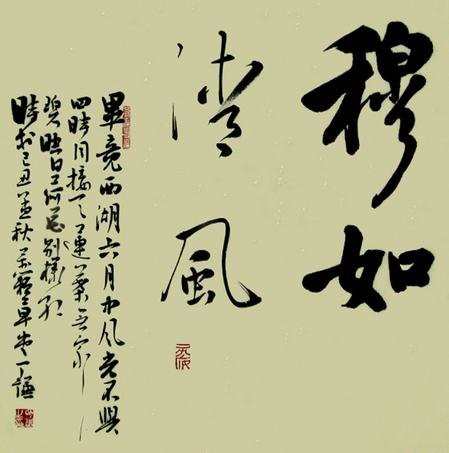 穆如
清風
畢竟西湖六月中风光不與
四時同接天蓮葉無窮
碧映日荷花別樣紅
時於己丑孟秋草堂丁謙